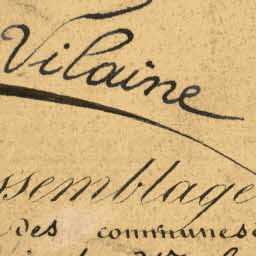 Vilaine
ssemblage
des communes